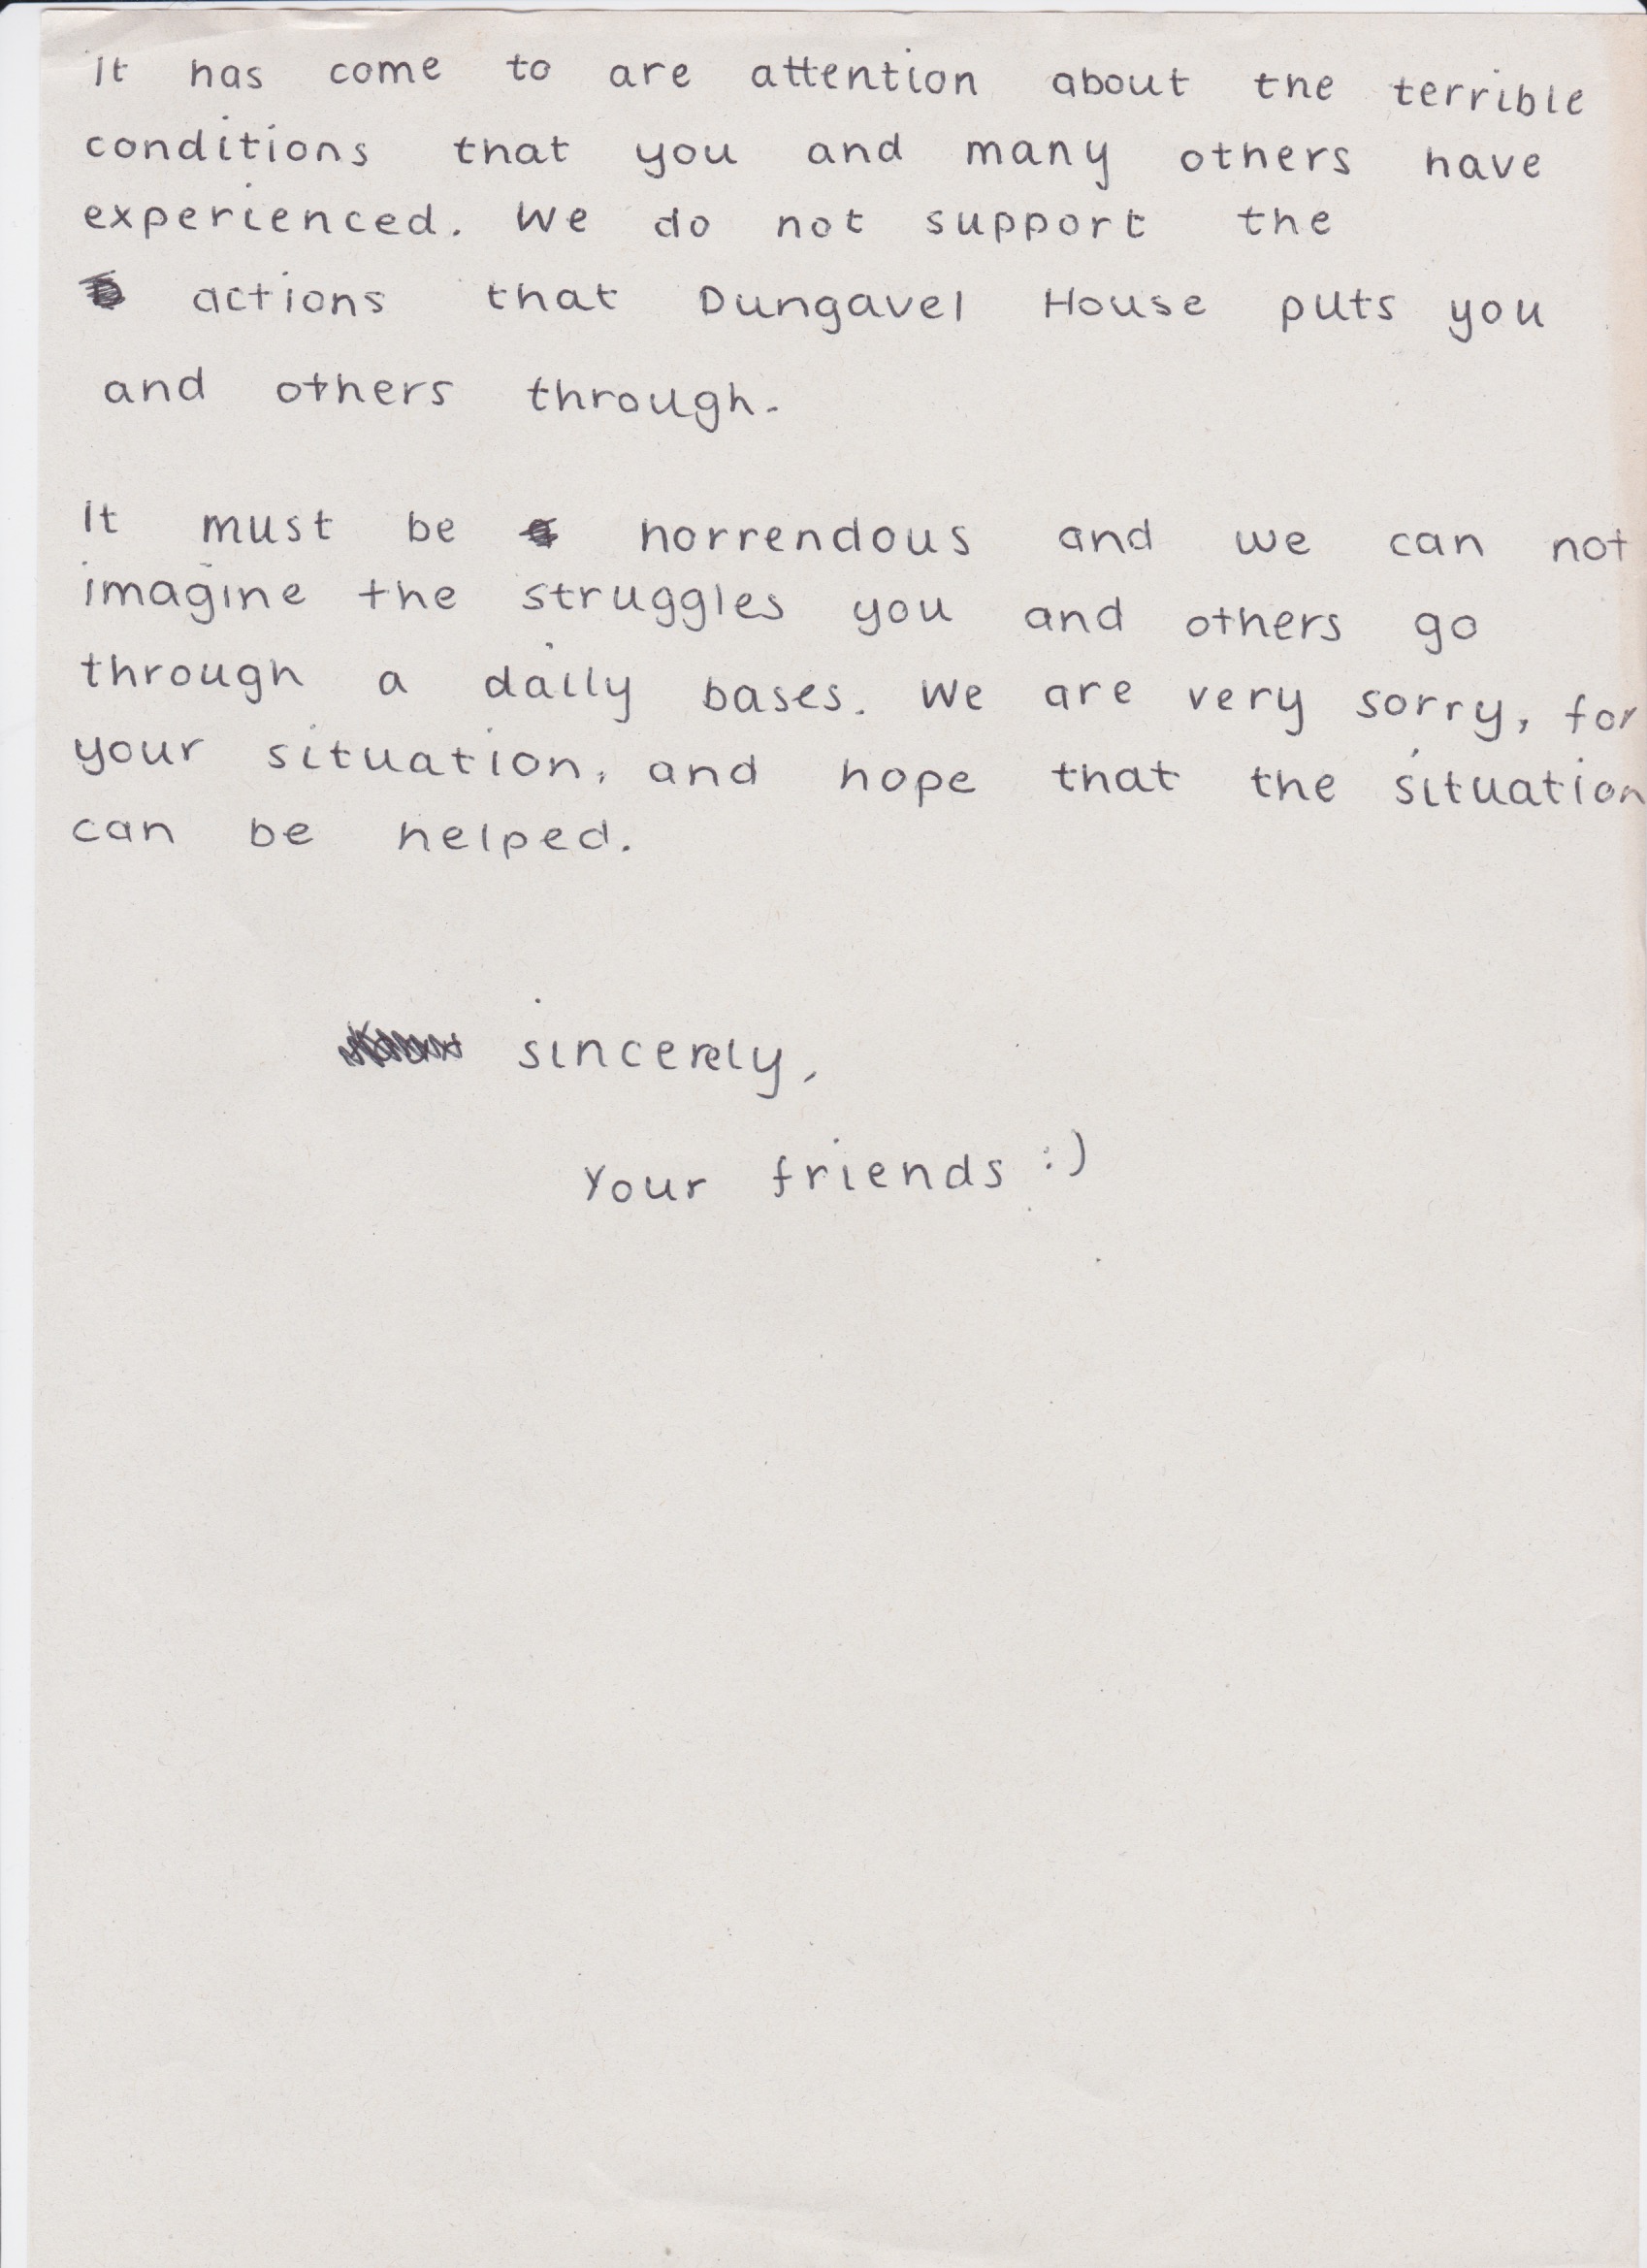 It has come to are attention about the terrible
conditions that you and many others have
experienced. We do not support the
actions that Dungavel House puts you
and others through.
It must be horrendous and we can not
imagine the struggles you and others go
through a daily bases. We are very sorry, for
your situation, and hope that the situation
can be helped.
sincerely,
Your friends :)